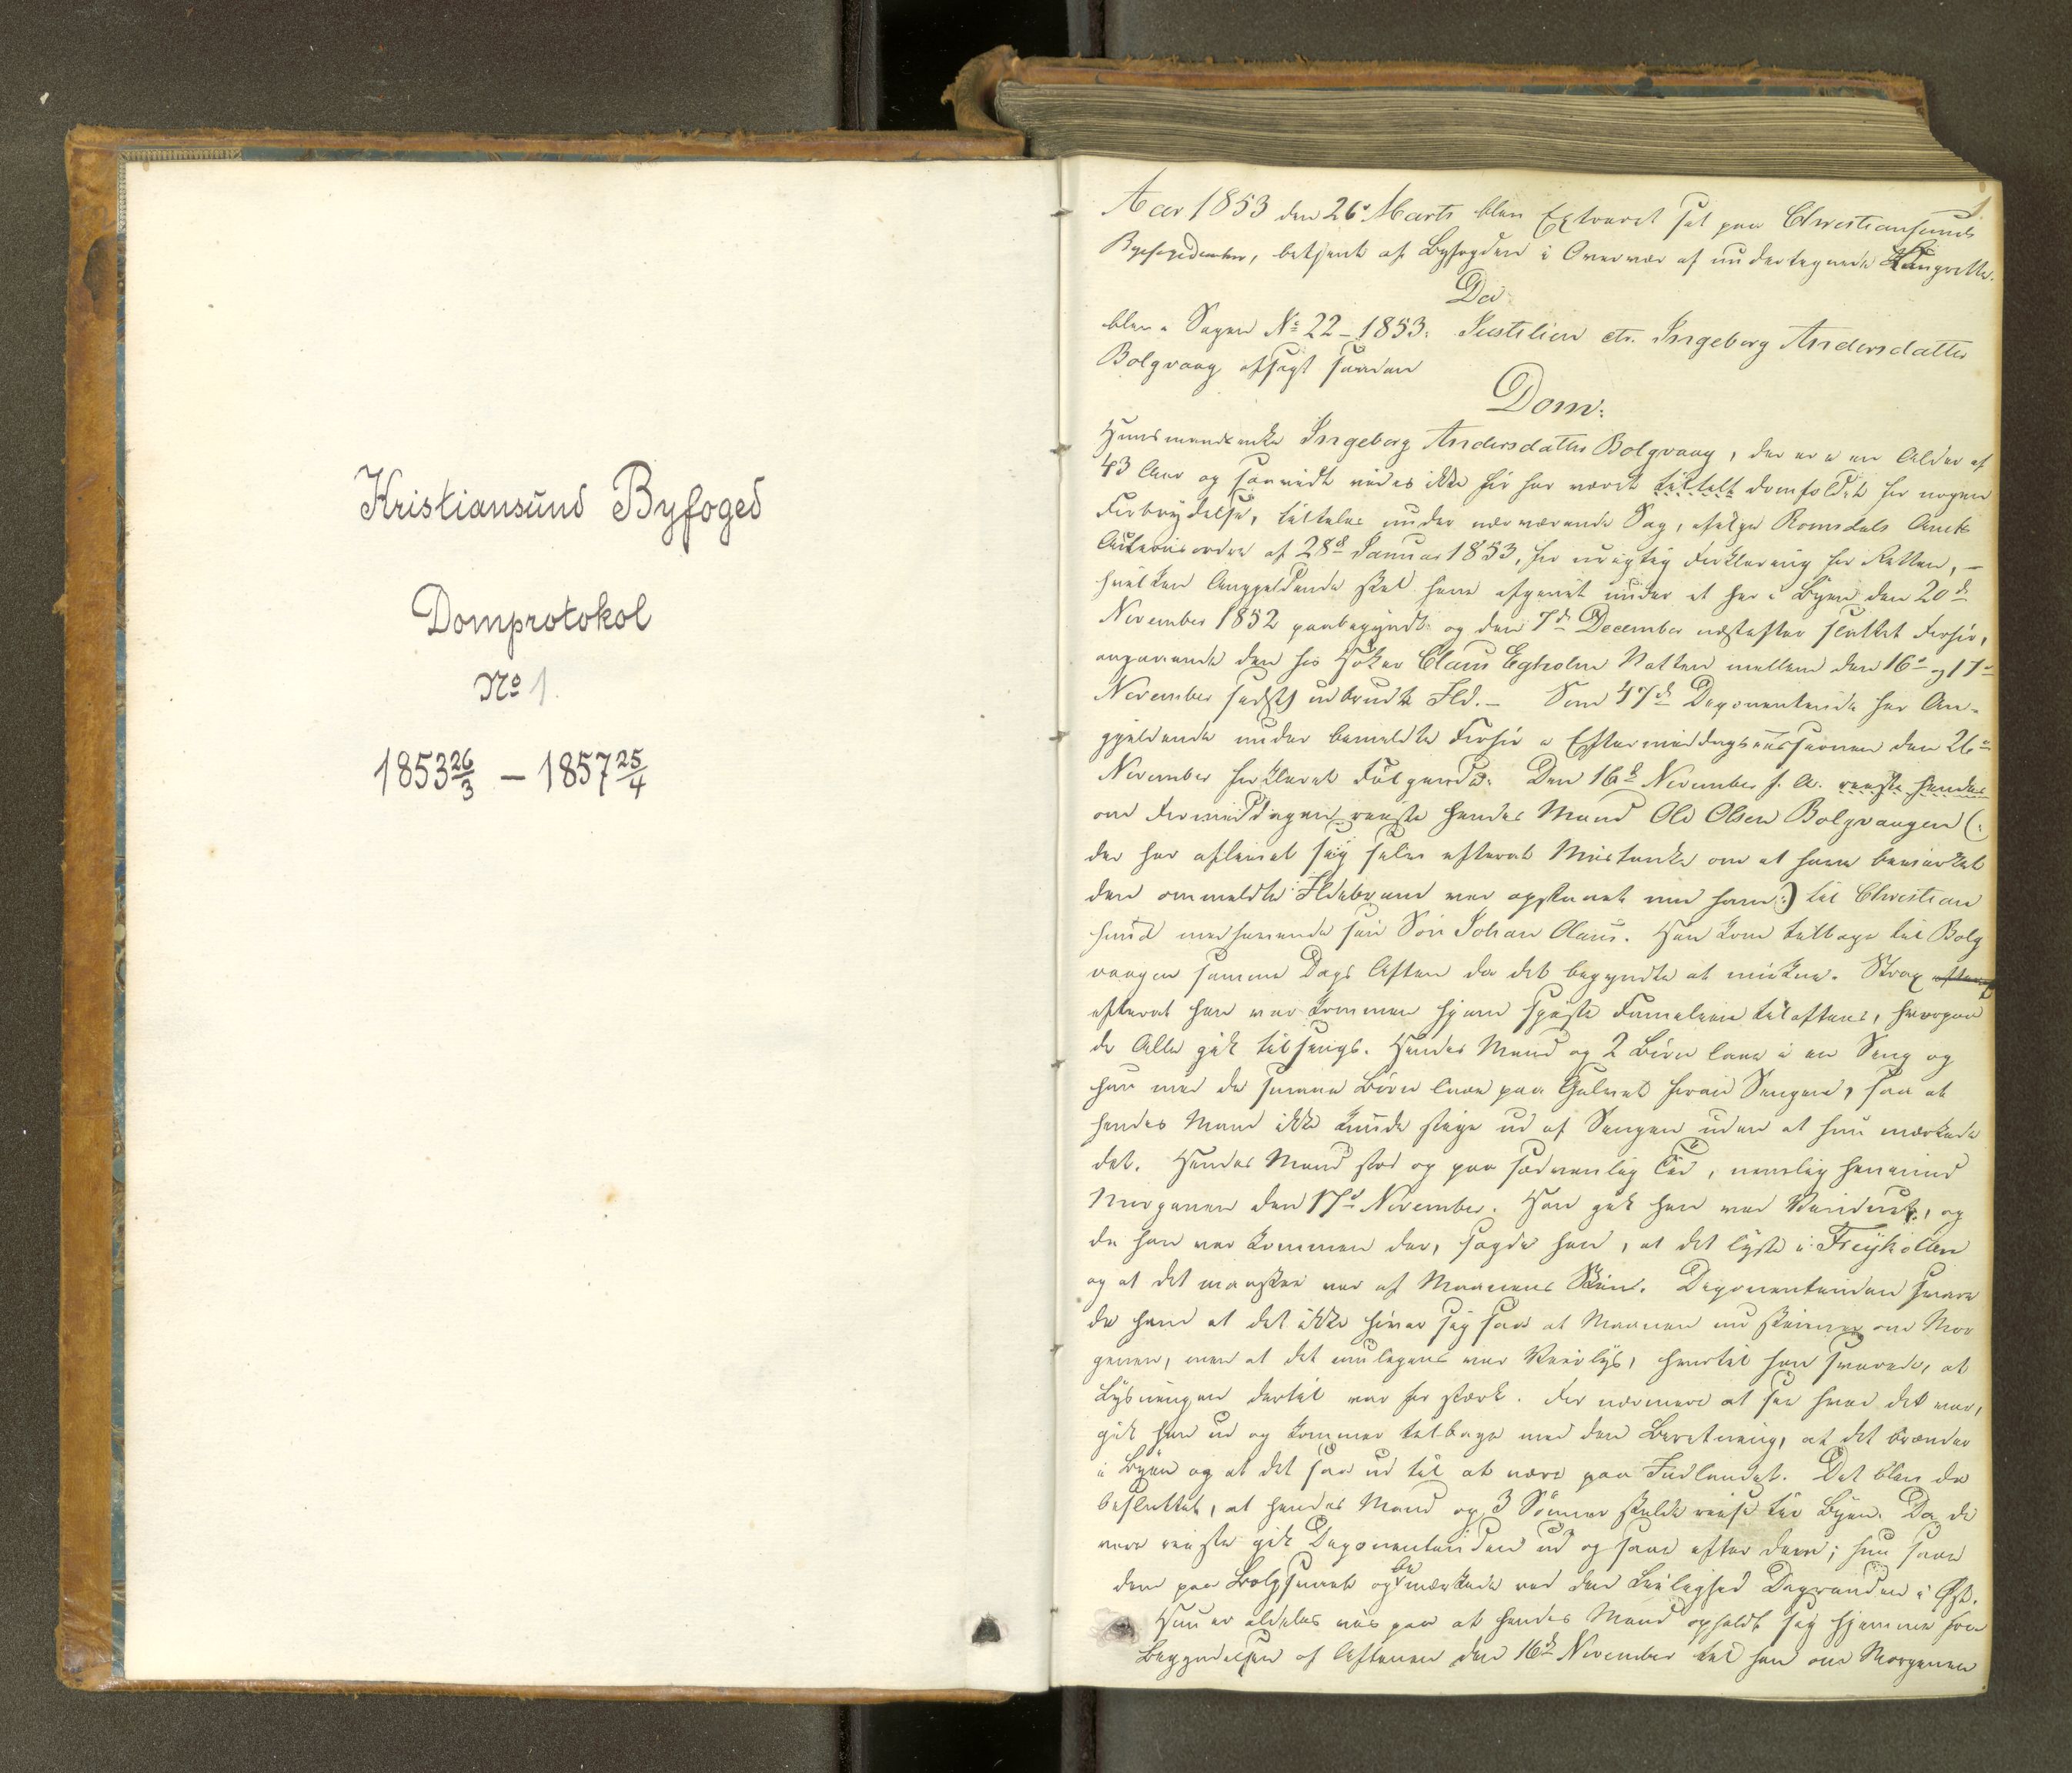 Kristiansund Byfoged
Domprotokol
No 1.
1853 26/3 – 1857 25/4
1
Aar 1853 den 26de Marts blev Extraret sat paa Christiansunds
Byfogedcontor, betjent af Byfogden i Overvær af undertegnede Laugrette.
Da
blev i Sagen No 22–1853: Justitien ctr. Ingeborg Andersdatter
Bolgvaag afsagt saadan
Dom:
Huusmandsenke Ingeborg Andersdatter Bolgvaag, der er i en Alder af
43 Aar og saavidt vides ikke før har været tiltalt domfældt for nogen
Forbrydelse, tiltales under nærværende Sag, ifølge Romsdals Amts
Actionsordre af 28de Januar 1853, for urigtig Forklaring for Retten, –
hvilken Angjeldende skal have afgivet under et her i Byen den 20de
November 1852 paabegyndt og den 7de December næstefter sluttet Forhør,
angaaende den hos Høker Claus Egholm Natten mellem den 16de og 17de
November sidstl. udbrudte Ild. – Som 47de Deponentinde har An-
gjeldende under bemeldte Forhør i Eftermiddagssessionen den 26de
November forklaret Følgende: Den 16de November f. A. reiste hendes
om Formiddagen reiste hendes Mand Ole Olsen Bolgvaagen (:
der har aflivet sig selv efterat Mistanke om at have bevirket
den ommeldte Ildebrand var opstaaet mod ham:) til Christian
sund medhavende sin Søn Johan Olaus. Han kom tilbage til Bolg
vaagen samme Dags Aften da det begyndte at mørkne. Strax efterat
efterat han var kommen hjem spiste Familien tilaftens, hvorpaa
de Alle gik tilsengs. Hendes Mand og 2 Børn laae i en Seng og
hun med de smaae Børn laae paa Gulvet foran Sengen, saa at
hendes Mand ikke kunde stige ud af Sengen uden at hun mærkede
det. Hendes Mand stod op paa sædvanlig Tid, nemlig henimod
Morgenen den 17de November. Han gik hen mod Vinduet, og
da han var kommen der, sagde han, at det lyste i Freykollen
og at det maaskee var af Maanens Skin. Deponentinden svare
de ham at det ikke hører sig saa at Maanen nu skinner om Mor
genen, men at det muligens var Veirlys, hvortil han svarede, at
Lysningen dertil var for stærk. For nærmere at see hvad det var,
gik han ud og kommer tilbage med den Beretning, at det brænder
i Byen og at det saa ud til at være paa Indlandet. Det blev da
besluttet, at hendes Mand og 3 Sønner skulde reise til Byen. Da de
vare reiste gik Deponentinden ud og saae efter dem; hun saae
dem paa Bolgsundet og bemærkede ved den Leilighed Dagranden i Øst.
Hun er aldeles vis paa at hendes Mand opholdt sig hjemme fra
Begyndelsen af Aftenen den 16de November til han om Morgenen